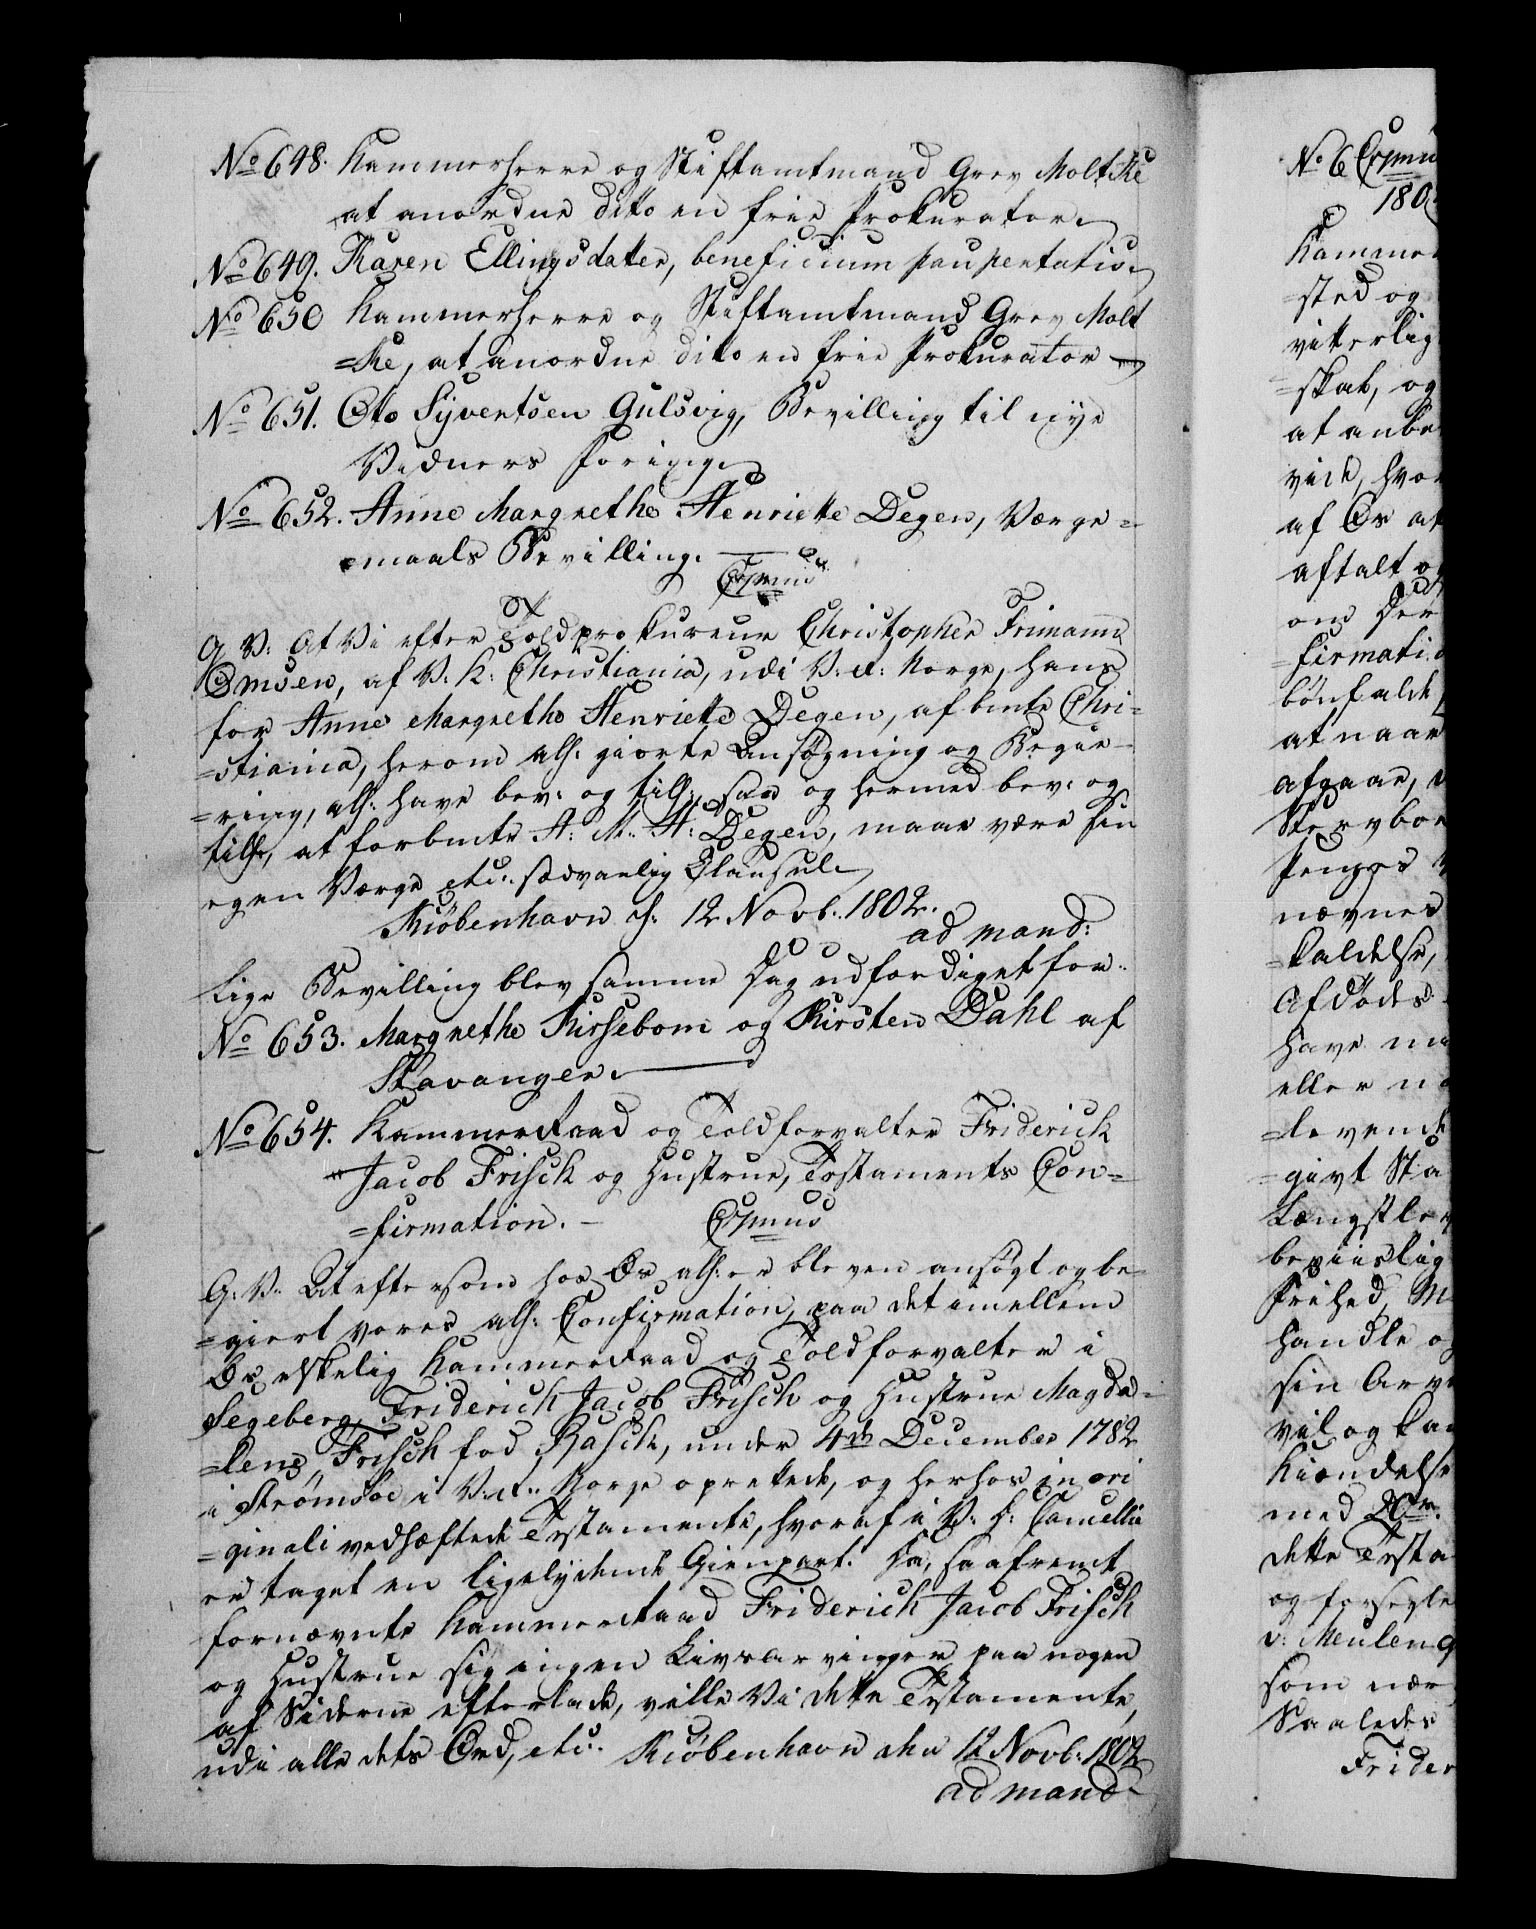 No 648. Kammerherre og Stiftamtmand Grev Moltke
at anordne dito en frie Prokurator.
No 649. Karen Ellingsdatter, beneficium paupertatis.
No 650 Kammerherre og Stiftamtmand Grev Molt
=ke, at anordne dito en frie Prokurator
No 651. Otto Syvertsen Gulsvig, Bevilling til nye
Vidners Føring.
No 652. Anne Margrethe Henriette Degen, Værge=
=maals Bevilling.
Expmus
G. V: At Vi efter Toldprokureur Christopher Frimann
Omsen, af V. K: Christiania, udi V: R: Norge, hans
for Anne Margrethe Henriette Degen, af bmte Chri=
=stiania, herom all: giorte Ansøgning og Begie=
=ring, all: have bev: og till:, saa og hermed bev: og
till:, at forbmte A: M: H: Degen, maae være sin
egen Værge etc: sædvanlig Clausul
Kiøbenhavn d: 12 Novb: 1802.
ad mand:
Lige Bevilling blev samme Dag udfærdiget for
No 653. Margrethe Kirsebom og Kirsten Dahl af
Stavanger.
No 654. Kammerraad og Toldforvalter Friderich
Jacob Frisch og Hustrue, Testaments Con=
=firmation. -
Expmus
G. V: At eftersom hos Os all: er bleven ansøgt og be=
=giert vores all: Confirmation, paa det imellem
Os elskelig Kammerraad og Toldforvalter i
Segeberg, Friderich Jacob Frisch og Hustrue Magda=
=lena Frisch fød Rasch, under 4de December 1782
i Strømsøe i V: R: Norge oprettede, og herhos in ori
=ginali vedhæftede Testamente, hvoraf i V: D: Cancellie
er taget en ligelydende Gienpart. Da, saafremt
fornævnte Kammerraad Friderich Jacob Frisch
og Hustrue sig ingen Livsarvinger paa nogen
af Siderne efterlade, ville Vi dette Testamente,
udi alle dets Ord, etc: Kiøbenhavn den 12 Novb: 1802
ad mand
No 6 Expmu
180
Kammer
=sted og
vitterlig
=skab, og
at anbe
vist, hvor
af Os at
aftalt o
om Der
=firmatio
bønfalde
at naar
afgaar,
Stervboe
Penges
nævnes
=kaldelse,
Afdødes
have
eller n
=levende
=givt Sta
Længstlev
beviislig
Frihed, M
handle o
sin Arv
vil og ka
Kiændelse
med
dette Testa
og forsegle
v: Meulen g
som nær
Saaledes
Frider